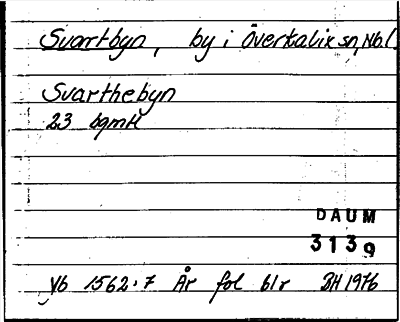 Svartbyn, by i Överkalix sn, Nb l.
Svarthebyn
23 bgmt
DAUM
3139
Vb 1562:7 År fol blr BH 1976